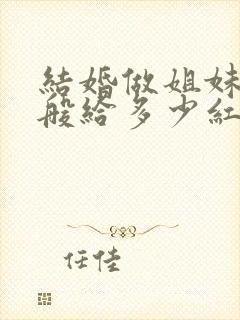 結婚做姐妹
般給多少紅
任佳